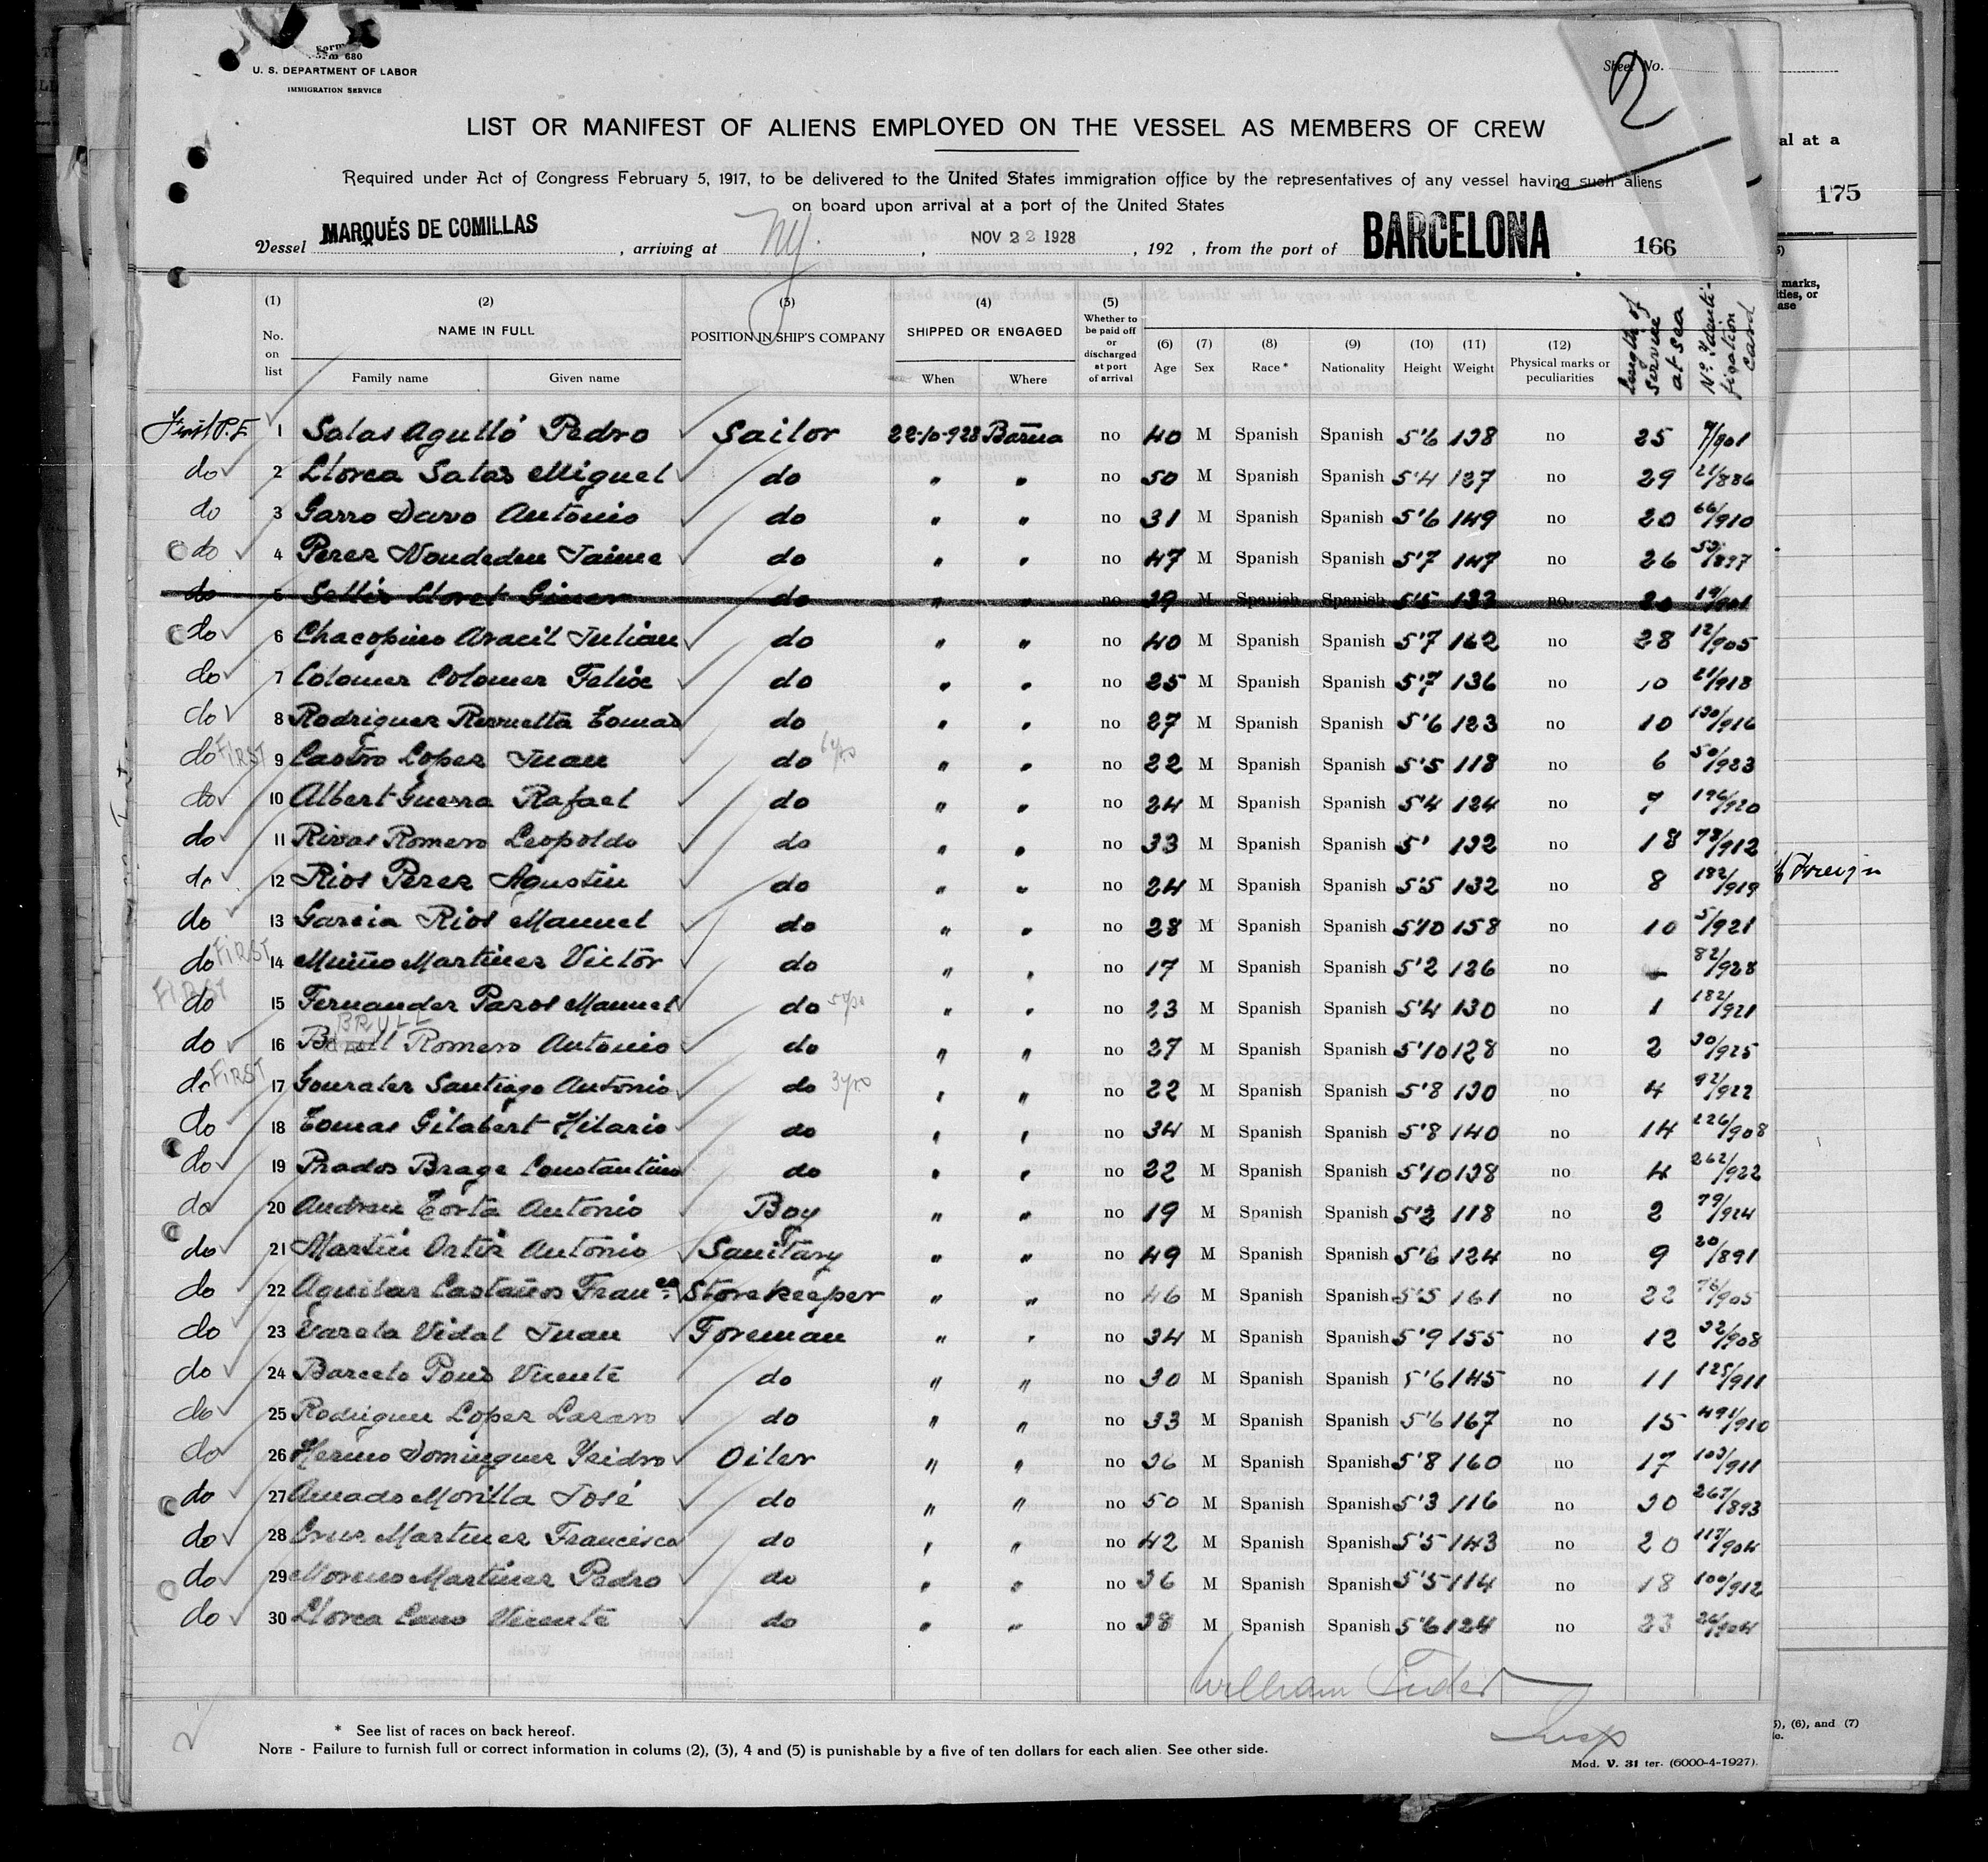 Form 680
U. S. DEPARTMENT OF LABOR
IMMIGRATION SERVICE
Sheet No.
2
LIST OR MANIFEST OF ALIENS EMPLOYED ON THE VESSEL AS MEMBERS OF CREW
al at a
Required under Act of Congress February 5, 1917, to be delivered to the United States immigration office by the representatives of any vessel having such aliens
on board upon arrival at a port of the United States
175
Vessel MARQUÉS DE COMILLAS , arriving at N.Y. , NOV 22 1928 , 192 , from the port of BARCELONA 166
(1) No. on list (2) NAME IN FULL Family name Given name (3) POSITION IN SHIP'S COMPANY (4) SHIPPED OR ENGAGED When Where (5) Whether to be paid off or discharged at port of arrival (6) Age (7) Sex (8) Race * (9) Nationality (10) Height (11) Weight (12) Physical marks or peculiarities Length of service at sea Nº Identification card
marks,
ities, or
ase
First P.E. 1 Salas Agulló Pedro Sailor 22-10-928 Barna no 40 M Spanish Spanish 5'6 138 no 25 7/901
do 2 Llorca Salas Miguel do " " no 50 M Spanish Spanish 5'4 127 no 29 21/886
do 3 Garro Davo Antonio do " " no 31 M Spanish Spanish 5'6 149 no 20 66/910
do 4 Perez Noudedeu Jaime do " " no 47 M Spanish Spanish 5'7 147 no 26 53/897
do 5 Sellés Lloret Giner do " " no 39 M Spanish Spanish 5'5 133 no 20 19/901
do 6 Chacopino Aracil Julian do " " no 40 M Spanish Spanish 5'7 162 no 28 12/905
do 7 Colomer Colomer Felix do " " no 25 M Spanish Spanish 5'7 136 no 10 21/918
do 8 Rodriguez Revuelta Tomas do " " no 27 M Spanish Spanish 5'6 123 no 10 130/916
do FIRST 9 Castro Lopez Juan do 6 yrs " " no 22 M Spanish Spanish 5'5 118 no 6 50/923
do 10 Albert Guerra Rafael do " " no 24 M Spanish Spanish 5'4 124 no 7 196/920
do 11 Rivas Romero Leopoldo do " " no 33 M Spanish Spanish 5' 132 no 18 78/912
do 12 Rios Perez Agustin do " " no 24 M Spanish Spanish 5'5 132 no 8 182/919
do 13 Garcia Rios Manuel do " " no 28 M Spanish Spanish 5'10 158 no 10 5/921
do FIRST 14 Muiño Martinez Victor do " " no 17 M Spanish Spanish 5'2 126 no 82/928
FIRST
do 15 Fernandez Pazos Manuel do 5 yrs " " no 23 M Spanish Spanish 5'4 130 no 1 182/921
BRULL
do 16 Romero Antonio do " " no 27 M Spanish Spanish 5'10 128 no 2 30/925
do FIRST 17 Gonzalez Santiago Antonio do 3 yrs " " no 22 M Spanish Spanish 5'8 130 no 4 92/922
do 18 Tomas Gilabert Hilario do " " no 34 M Spanish Spanish 5'8 140 no 14 226/908
do 19 Prados Brage Constantino do " " no 22 M Spanish Spanish 5'10 138 no 4 262/922
do 20 Andreu Torta Antonio Boy " " no 19 M Spanish Spanish 5'3 118 no 2 79/924
do 21 Martin Ortiz Antonio Sanitary " " no 49 M Spanish Spanish 5'6 124 no 9 20/891
do 22 Aguilar Castaños Franco Storekeeper " " no 46 M Spanish Spanish 5'5 161 no 22 76/905
do 23 Varela Vidal Juan Foreman " " no 34 M Spanish Spanish 5'9 155 no 12 32/908
do 24 Barcelo Pons Vicente do " " no 30 M Spanish Spanish 5'6 145 no 11 125/911
do 25 Rodriguez Lopez Lazaro do " " no 33 M Spanish Spanish 5'6 167 no 15 491/910
do 26 Hermo Dominguez Ysidro Oiler " " no 36 M Spanish Spanish 5'8 160 no 17 103/911
do 27 Amado Morilla José do " " no 50 M Spanish Spanish 5'3 116 no 30 267/893
do 28 Cruz Martinez Francisco do " " no 42 M Spanish Spanish 5'5 143 no 20 117/904
do 29 Moreno Martinez Pedro do " " no 36 M Spanish Spanish 5'5 114 no 18 100/912
do 30 Llorca Cano Vicente do " " no 38 M Spanish Spanish 5'6 124 no 23 26/904
Foreign
William
Insp
* See list of races on back hereof.
NOTE - Failure to furnish full or correct information in colums (2), (3), 4 and (5) is punishable by a five of ten dollars for each alien. See other side.
Mod. V. 31 ter. (6000-4-1927).
(6), and (7)